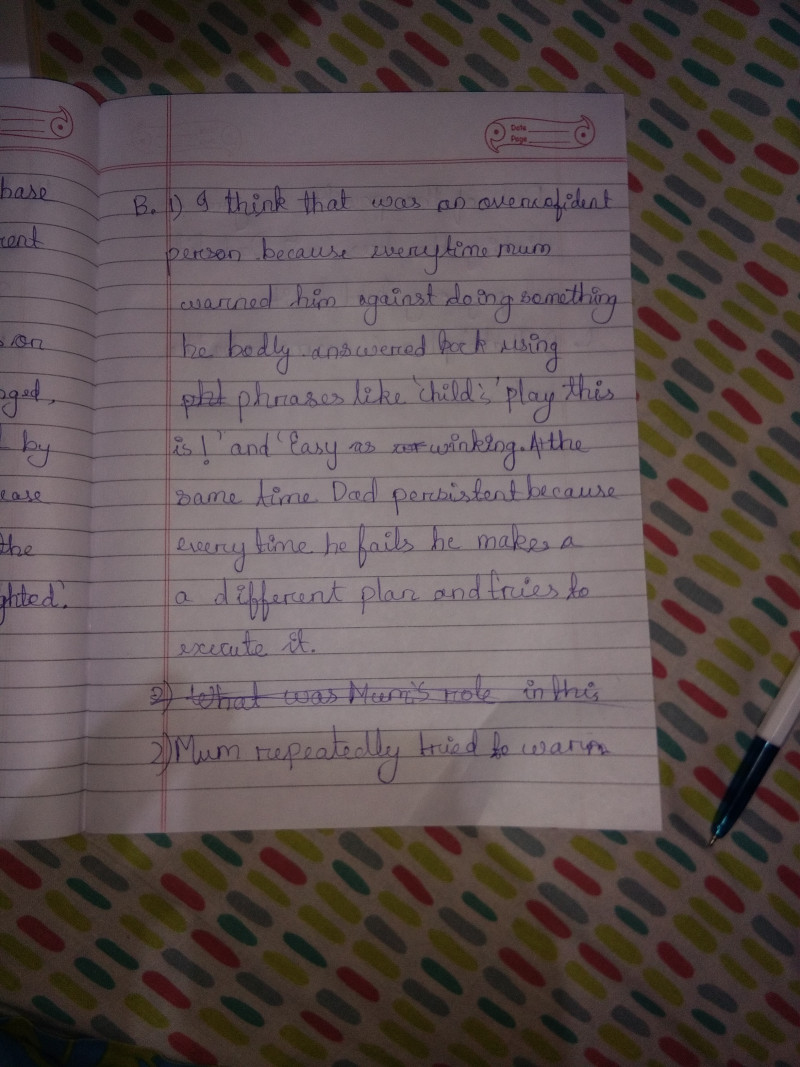 Date
Page
hase
ent
s on
ged,
by
ease
the
ghted'.
B. 1) I think that was an overconfident
person because everytime mum
warned him against doing something
he bodly answered back using
phrases like 'child's' play this
is!' and 'Easy as winking. At the
same time Dad persistent because
every time he fails he makes a
a different plan and tries to
execute it.
2) What was Mum's role in this
2) Mum repeatedly tried to warn